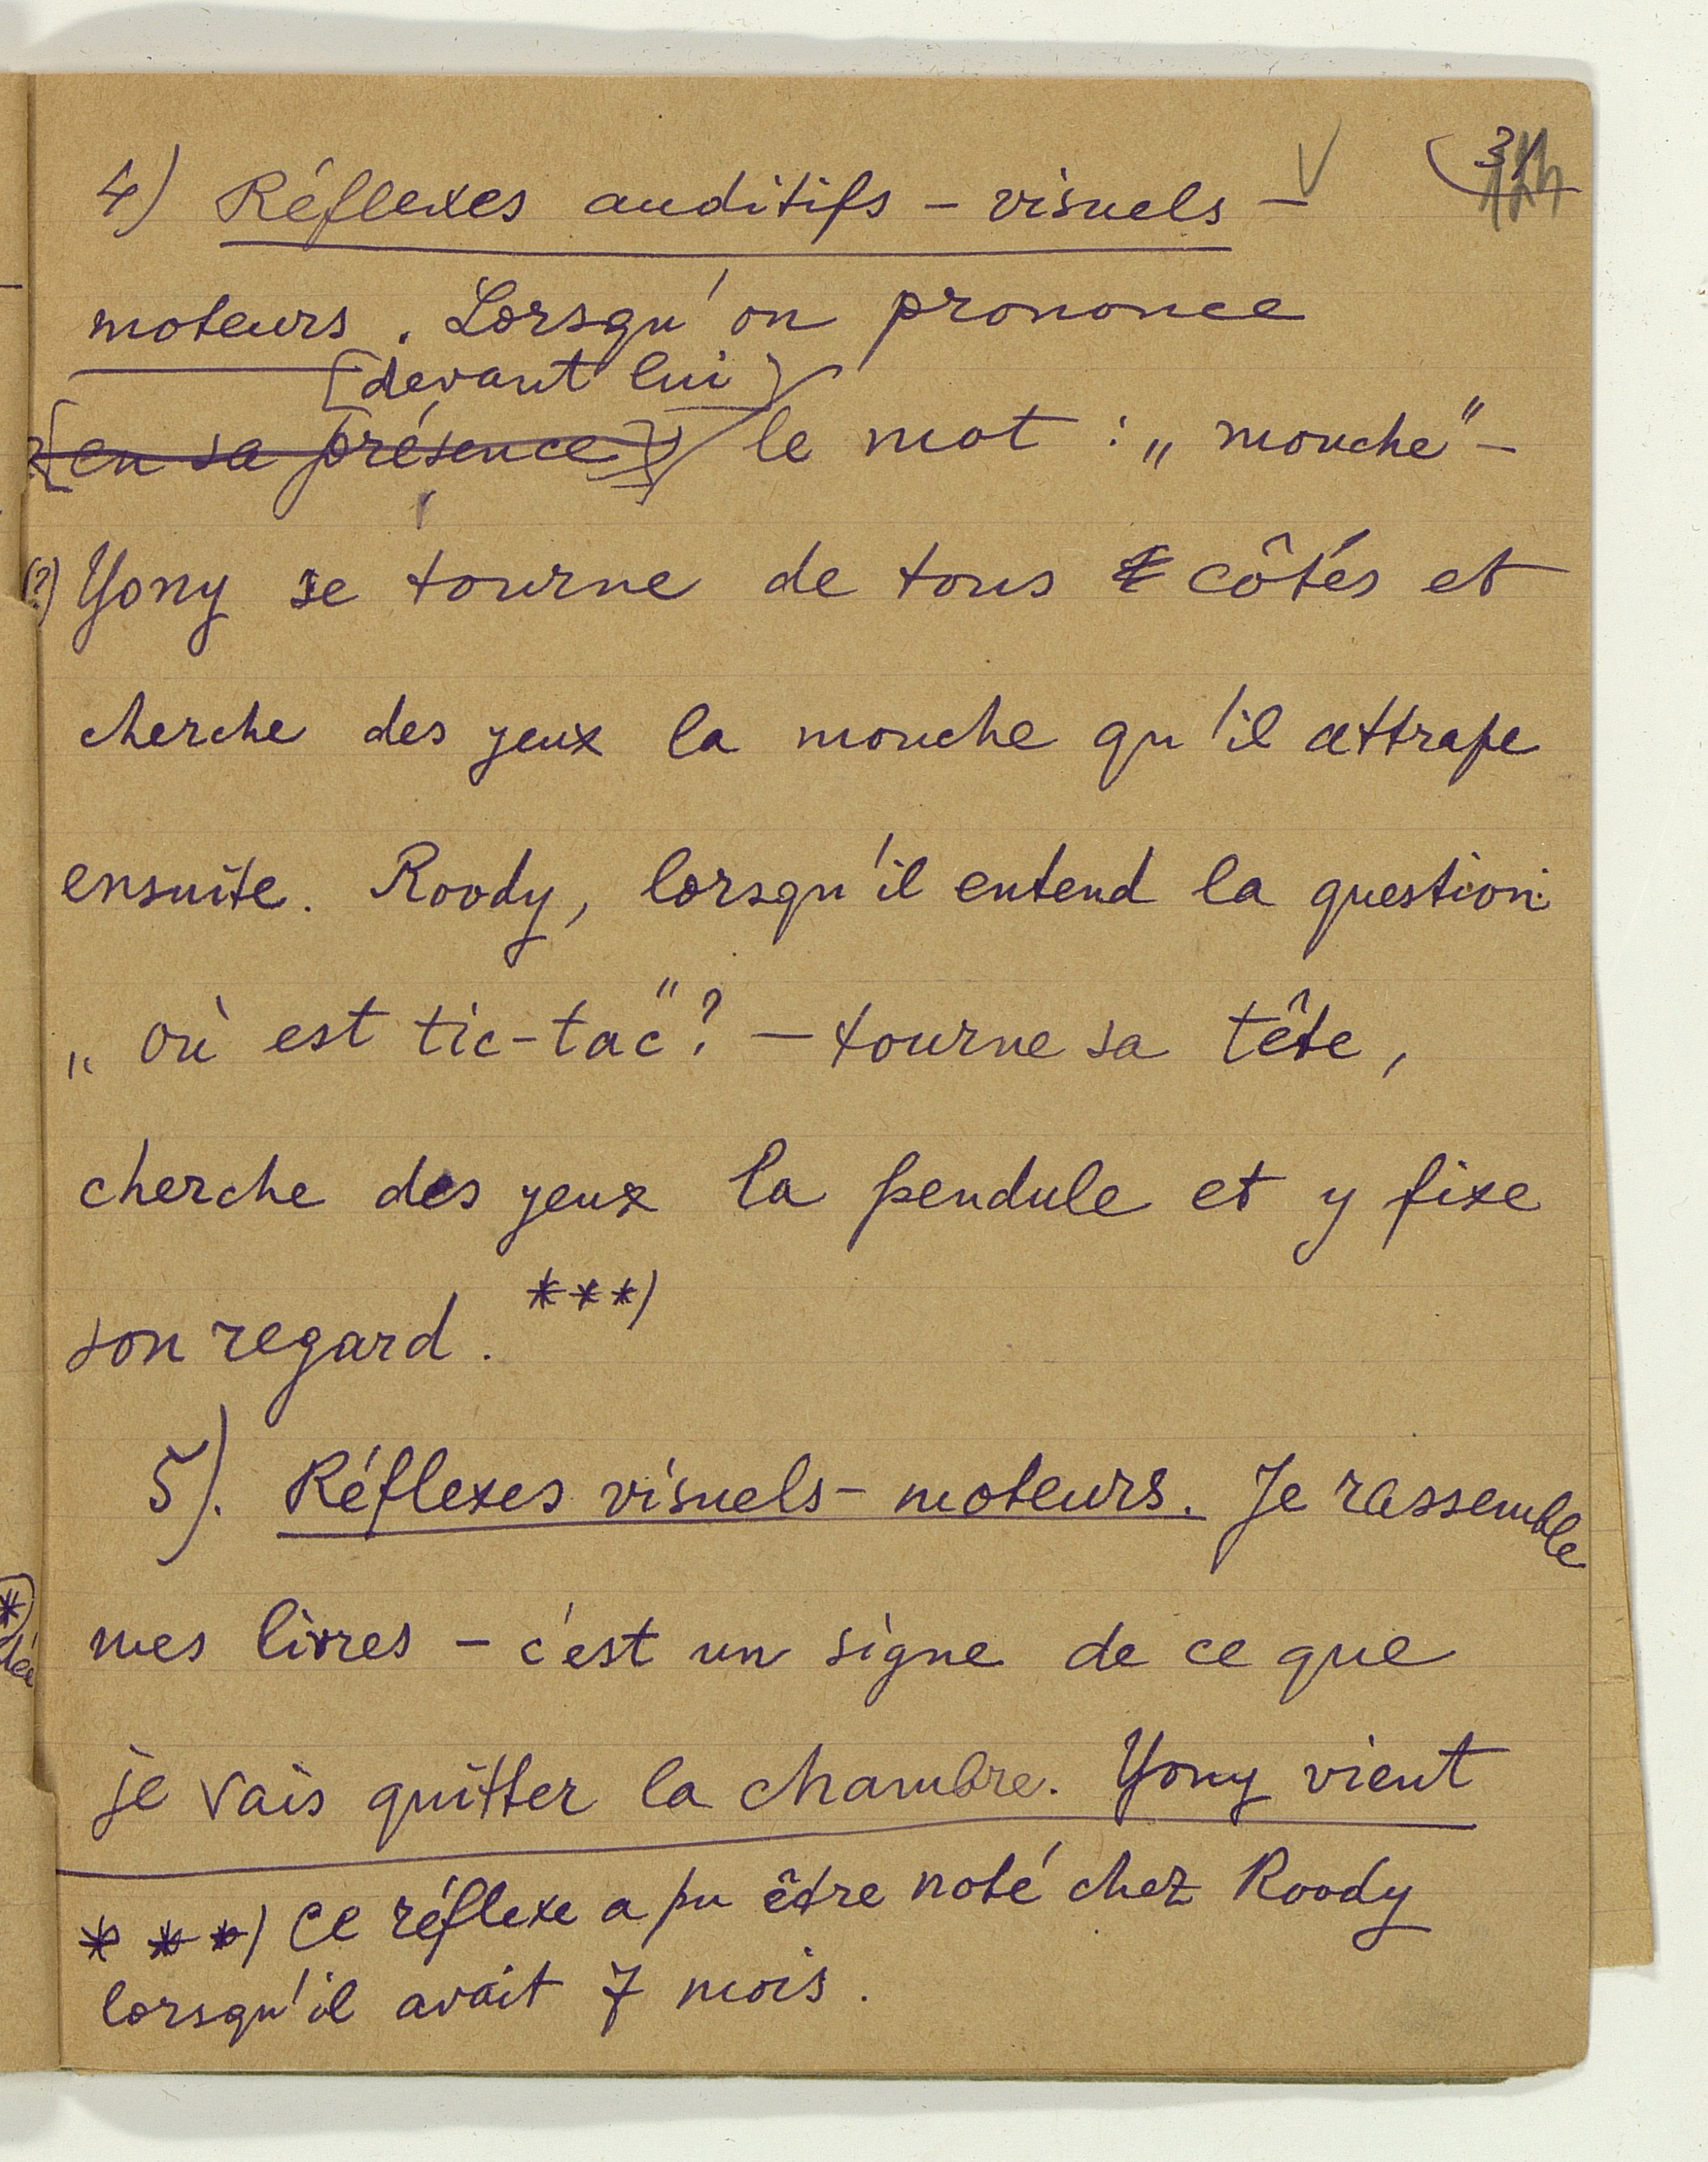 4) Réflexes auditifs – visuels –
moteurs. Lorsqu'on prononce
[devant lui]
[en sa présence] le mot : „mouche" –
(?) Yony se tourne de tous côtés et
cherche des yeux la mouche qu'il attrape
ensuite. Roody, lorsqu'il entend la question:
„où est tic-tac"? – tourne sa tête,
cherche des yeux la pendule et y fixe
son regard. ***)
5). Réflexes visuels – moteurs. Je rassemble
mes livres – c'est un signe de ce que
je vais quitter la chambre. Yony vient
***) Ce réflexe a pu être noté chez Roody
lorsqu'il avait 7 mois.